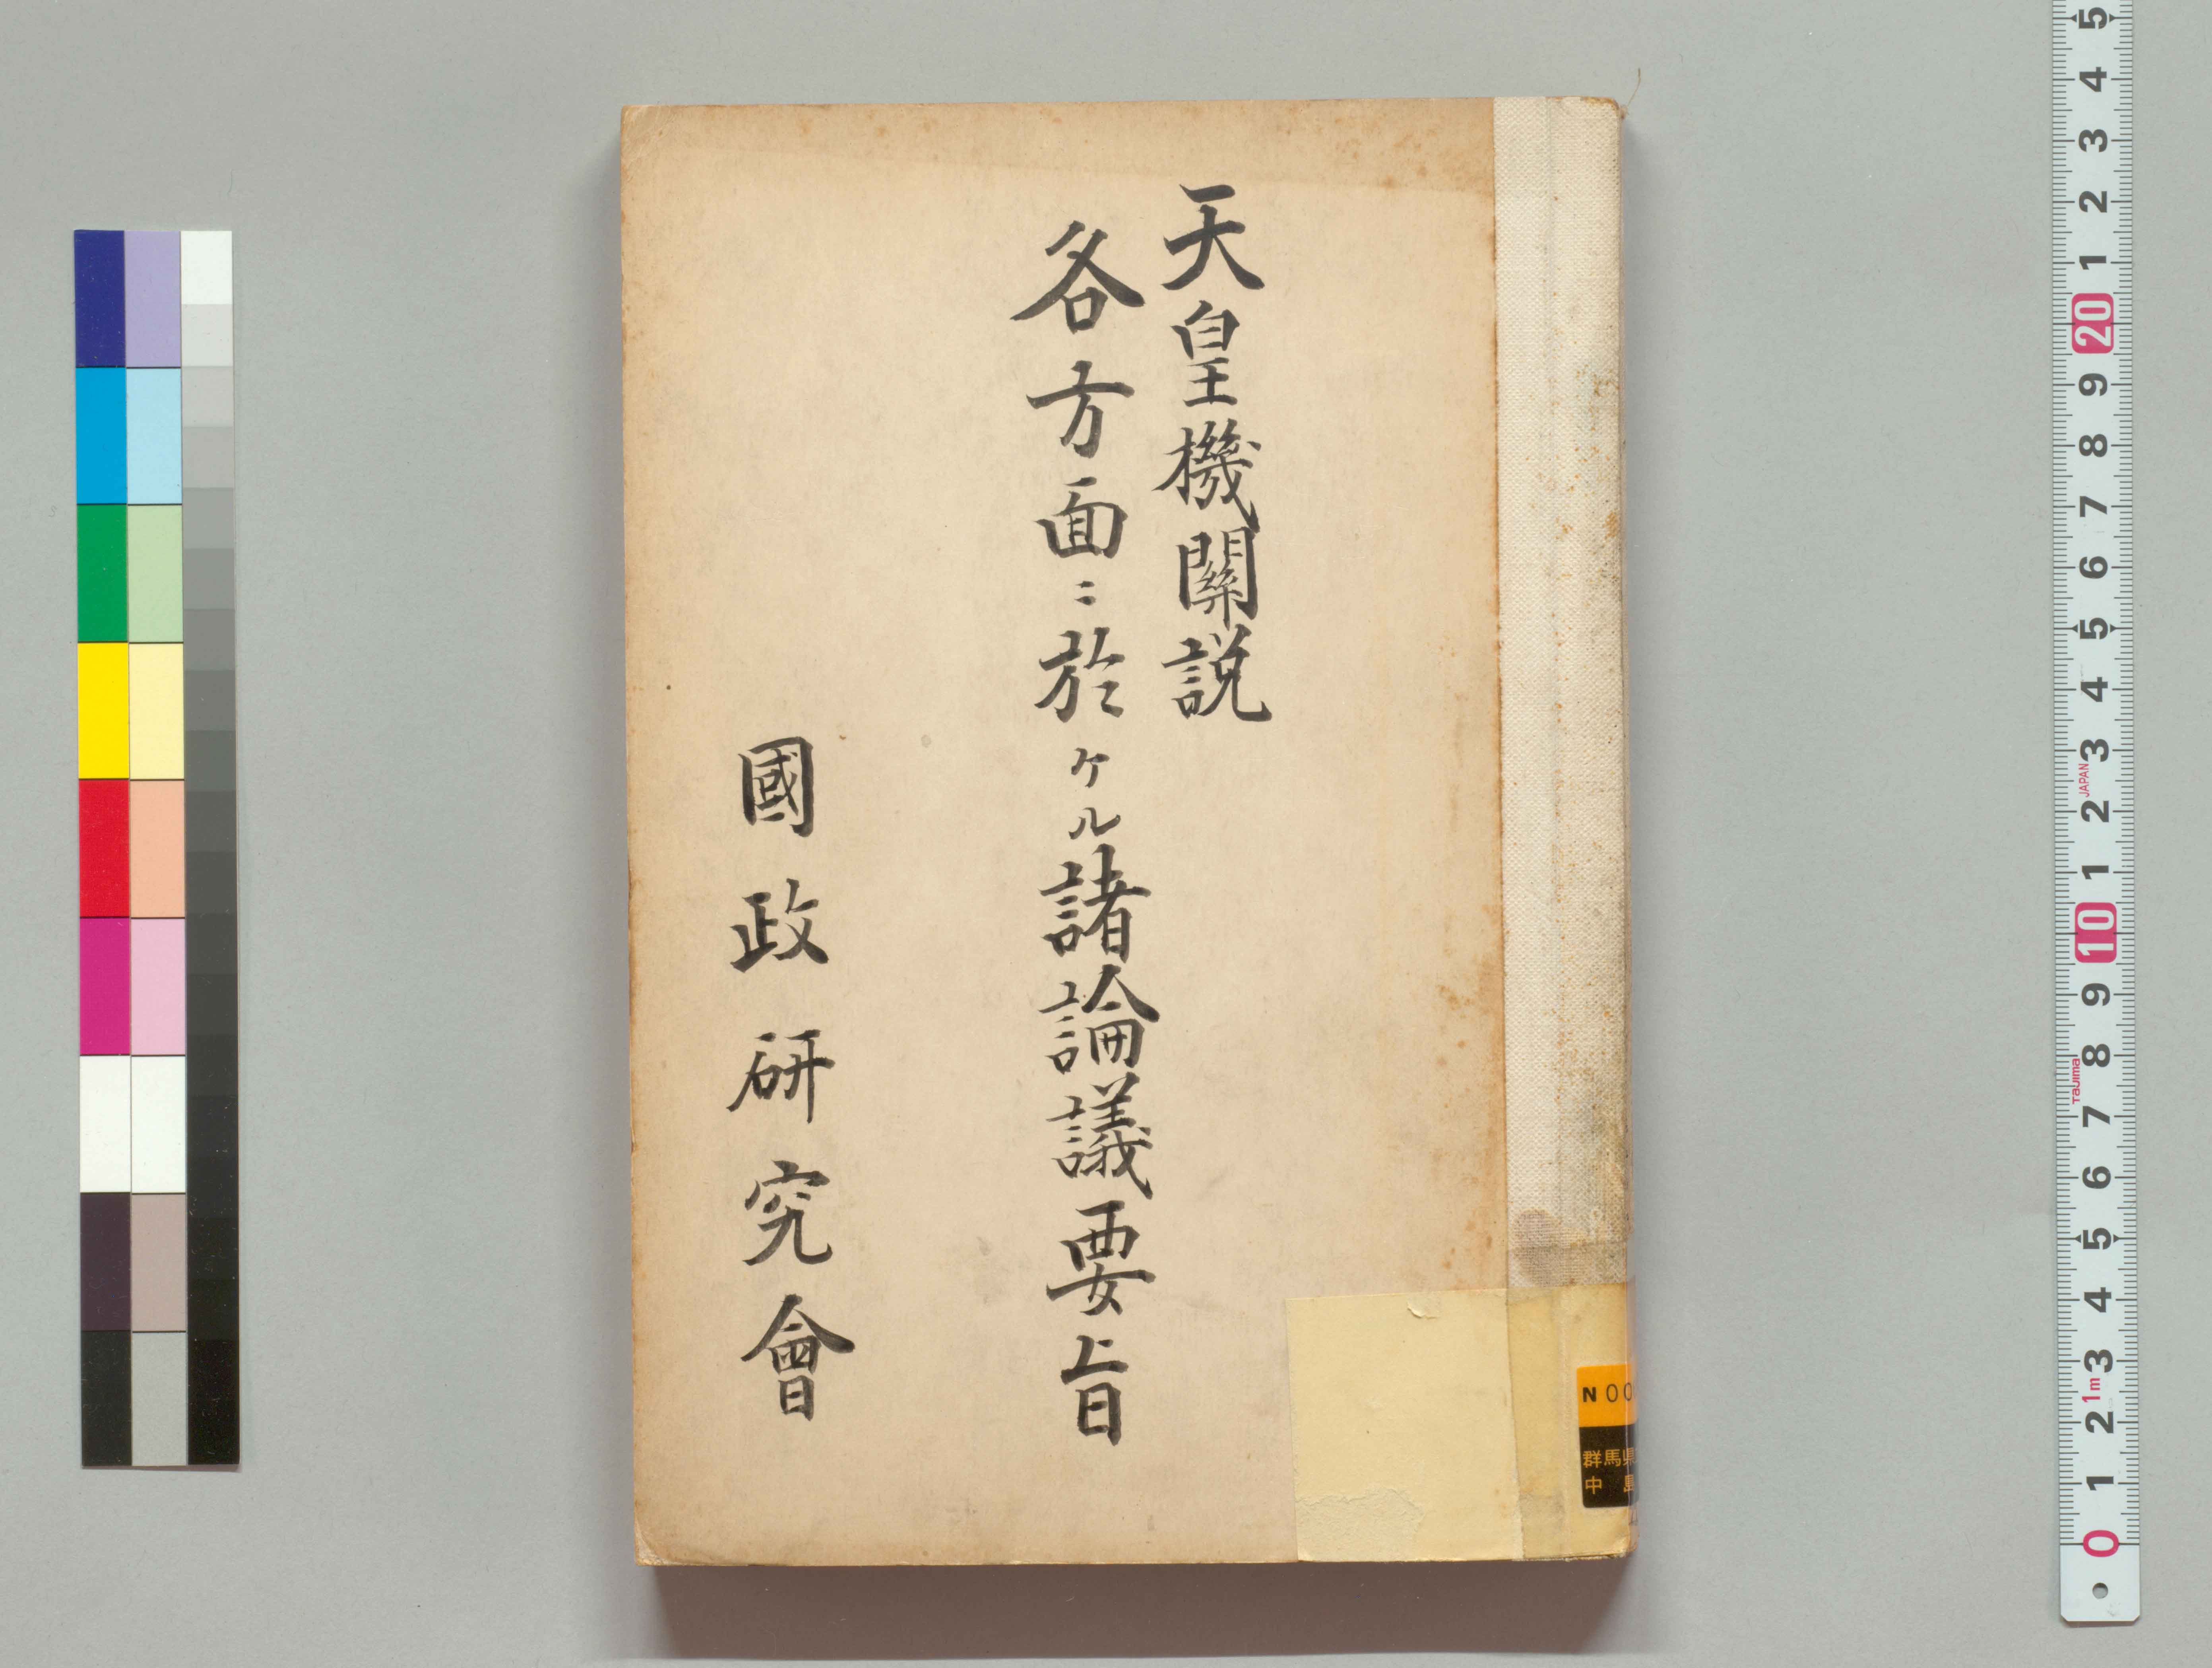 天皇機關説
各方面ニ於ケル諸論議要旨
國政研究會
N00
群馬県
中島
5
4
3
2
1
20
9
8
7
6
5
4
3
JAPAN
2
1
10
9
8
Tajima
7
6
5
4
3
1m
2
1
0